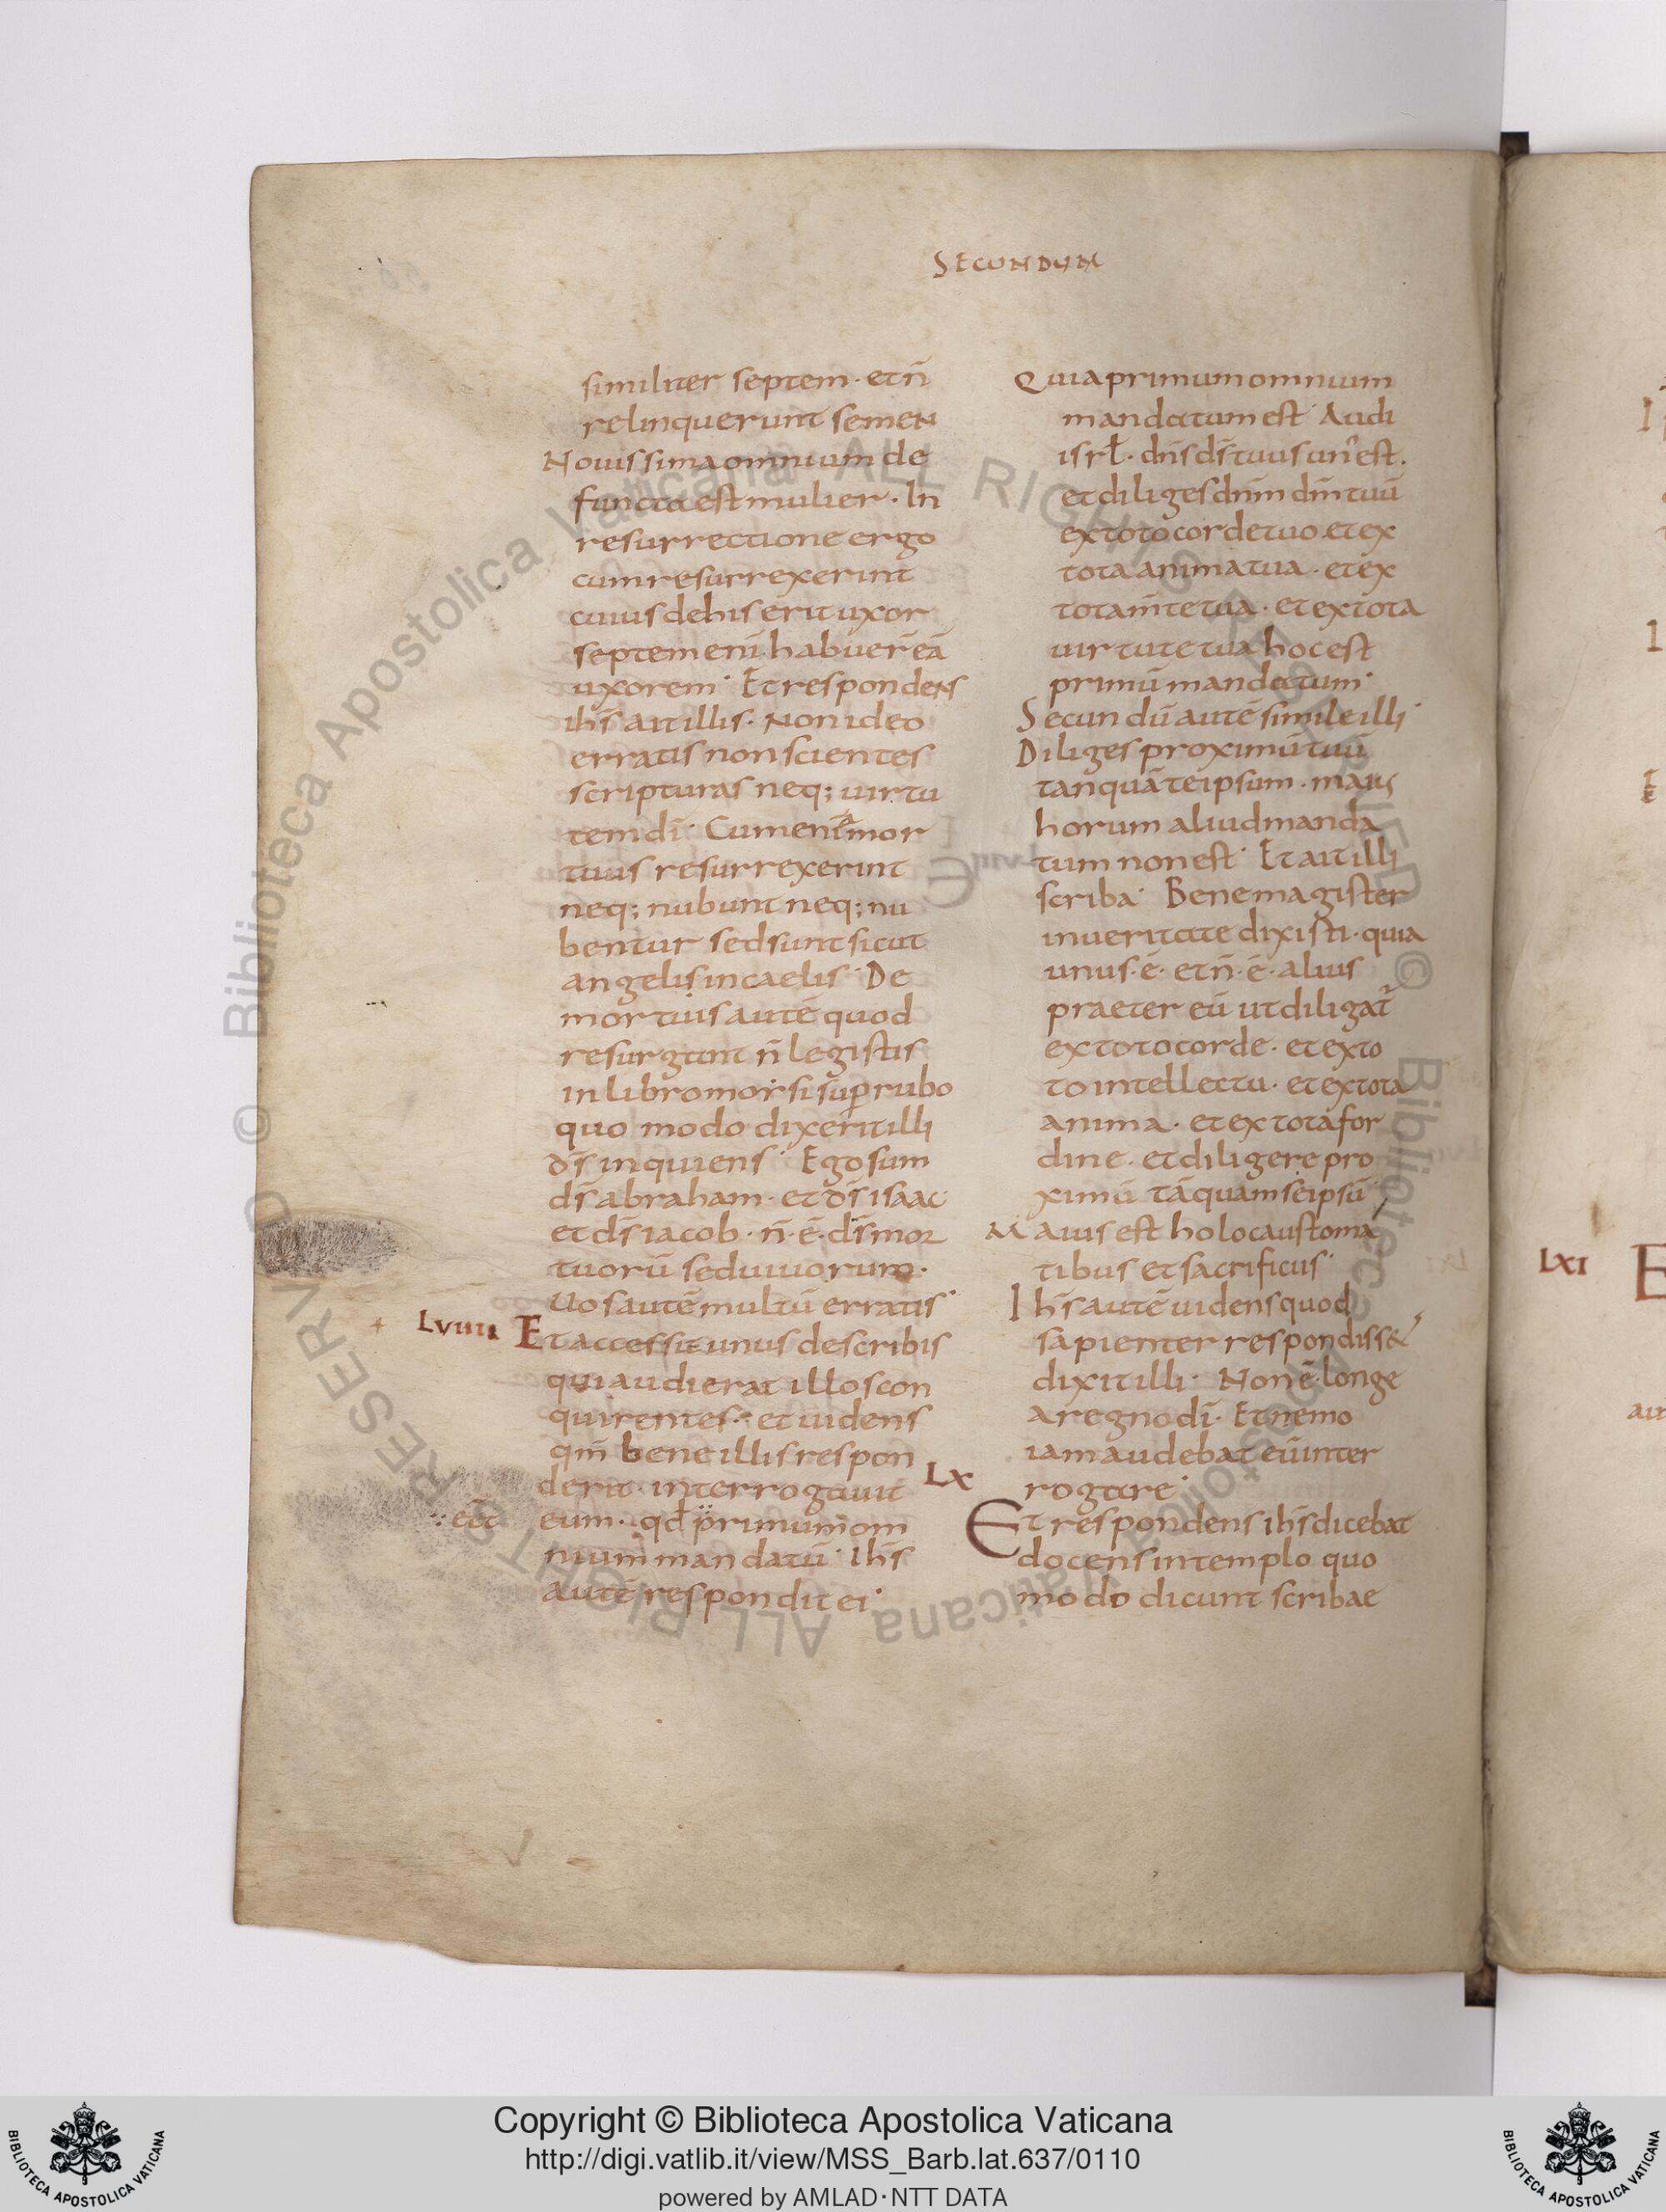 SECUNDUM
similiter septem· et n̄
relinquerunt semen
Nouissima omnium de
functa est mulier· In
resurrectione ergo
cum resurrexerint
cuius de his erit uxor
septem enī habuer̄ eā
uxorem· Et respondens
ih̄s ait illis· Non ideo
erratis non scientes
scripturas neq; uirtu
tem dī· Cum enī a mor
tuis resurrexerint
neq; nubunt neq; nu
bentur sed sunt sicut
angelis in caelis· De
mortuis autē quod
resurgant n̄ legistis
in libro morsi sup̄ rubo
quo modo dixerit illi
d̄s inquiens· Ego sum
d̄s abraham· et d̄s isaac
et d̄s iacob· n̄· ē· d̄s mor
tuorū sed uiuorum·
Uos autē multū erratis·
LVIIII Et accessit unus de scribis
qui audierat illos con
quirentes· et uidens
qm̄ bene illis respon
derit· interrogauit
eum· qd̄ primum om
nium mandatū· Ih̄s
autē respondit ei·
eēt
Quia primum omnium
mandatum est· Audi
isrl̄· dn̄s d̄s tuus un' est·
et diliges dn̄m dm̄ tuū
ex toto corde tuo· et ex
tota anima tua· et ex
tota m̄te tua· et ex tota
uirtute tua hoc est
primū mandatum·
Secundū autē simile illi·
Diliges proximū tuū
tanquā te ipsum· maius
horum aliud manda
tum non est· Et ait illi
scriba· Bene magister
in ueritate dixisti· quia
unus· ē· et n̄· ē· alius
praeter eū ut diligat'
ex toto corde· et ex to
to intellectu· et ex tota
anima· et ex tota for
dine· et diligere pro
ximū tāquam se ipsū
Maius est holocaustoma
tibus et sacrificiis·
Ih̄s autē uidens quod
sapienter respondiss&
dixit illi· Non ē· longe
a regno dī· Et nemo
iam audebat eū inter
rogare·
LX
Et respondens ih̄s dicebat
docens in templo quo
modo dicunt scribae
LXI
E
Copyright © Biblioteca Apostolica Vaticana
http://digi.vatlib.it/view/MSS_Barb.lat.637/0110
powered by AMLAD·NTT DATA
BIBLIOTECA APOSTOLICA VATICANA
BIBLIOTECA APOSTOLICA VATICANA